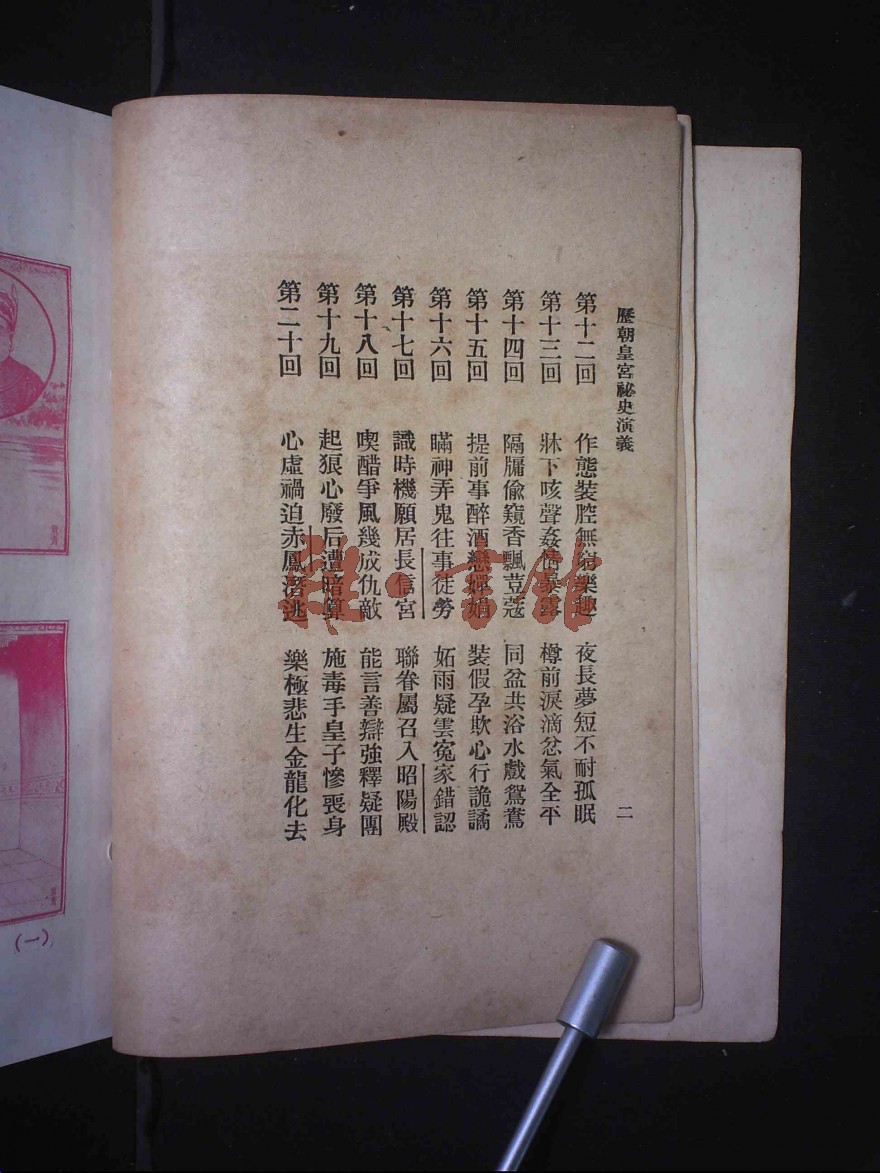 歷朝皇宮祕史演義 二
第十二回 作態裝腔無窮樂趣 夜長夢短不耐孤眠
第十三回 牀下咳聲姦情暴露 樽前淚滴忿氣全平
第十四回 隔牖偷窺香飄荳蔻 同盆共浴水戲鴛鴦
第十五回 提前事醉酒戀嬋娟 裝假孕欺心行詭譎
第十六回 瞞神弄鬼往事徒勞 妬雨疑雲寃家錯認
第十七回 識時機願居長信宮 聯眷屬召入昭陽殿
第十八回 喫醋爭風幾成仇敵 能言善辯強釋疑團
第十九回 起狠心廢后遭暗算 施毒手皇子慘喪身
第二十回 心虛禍迫赤鳳潛逃 樂極悲生金龍化去
(一)